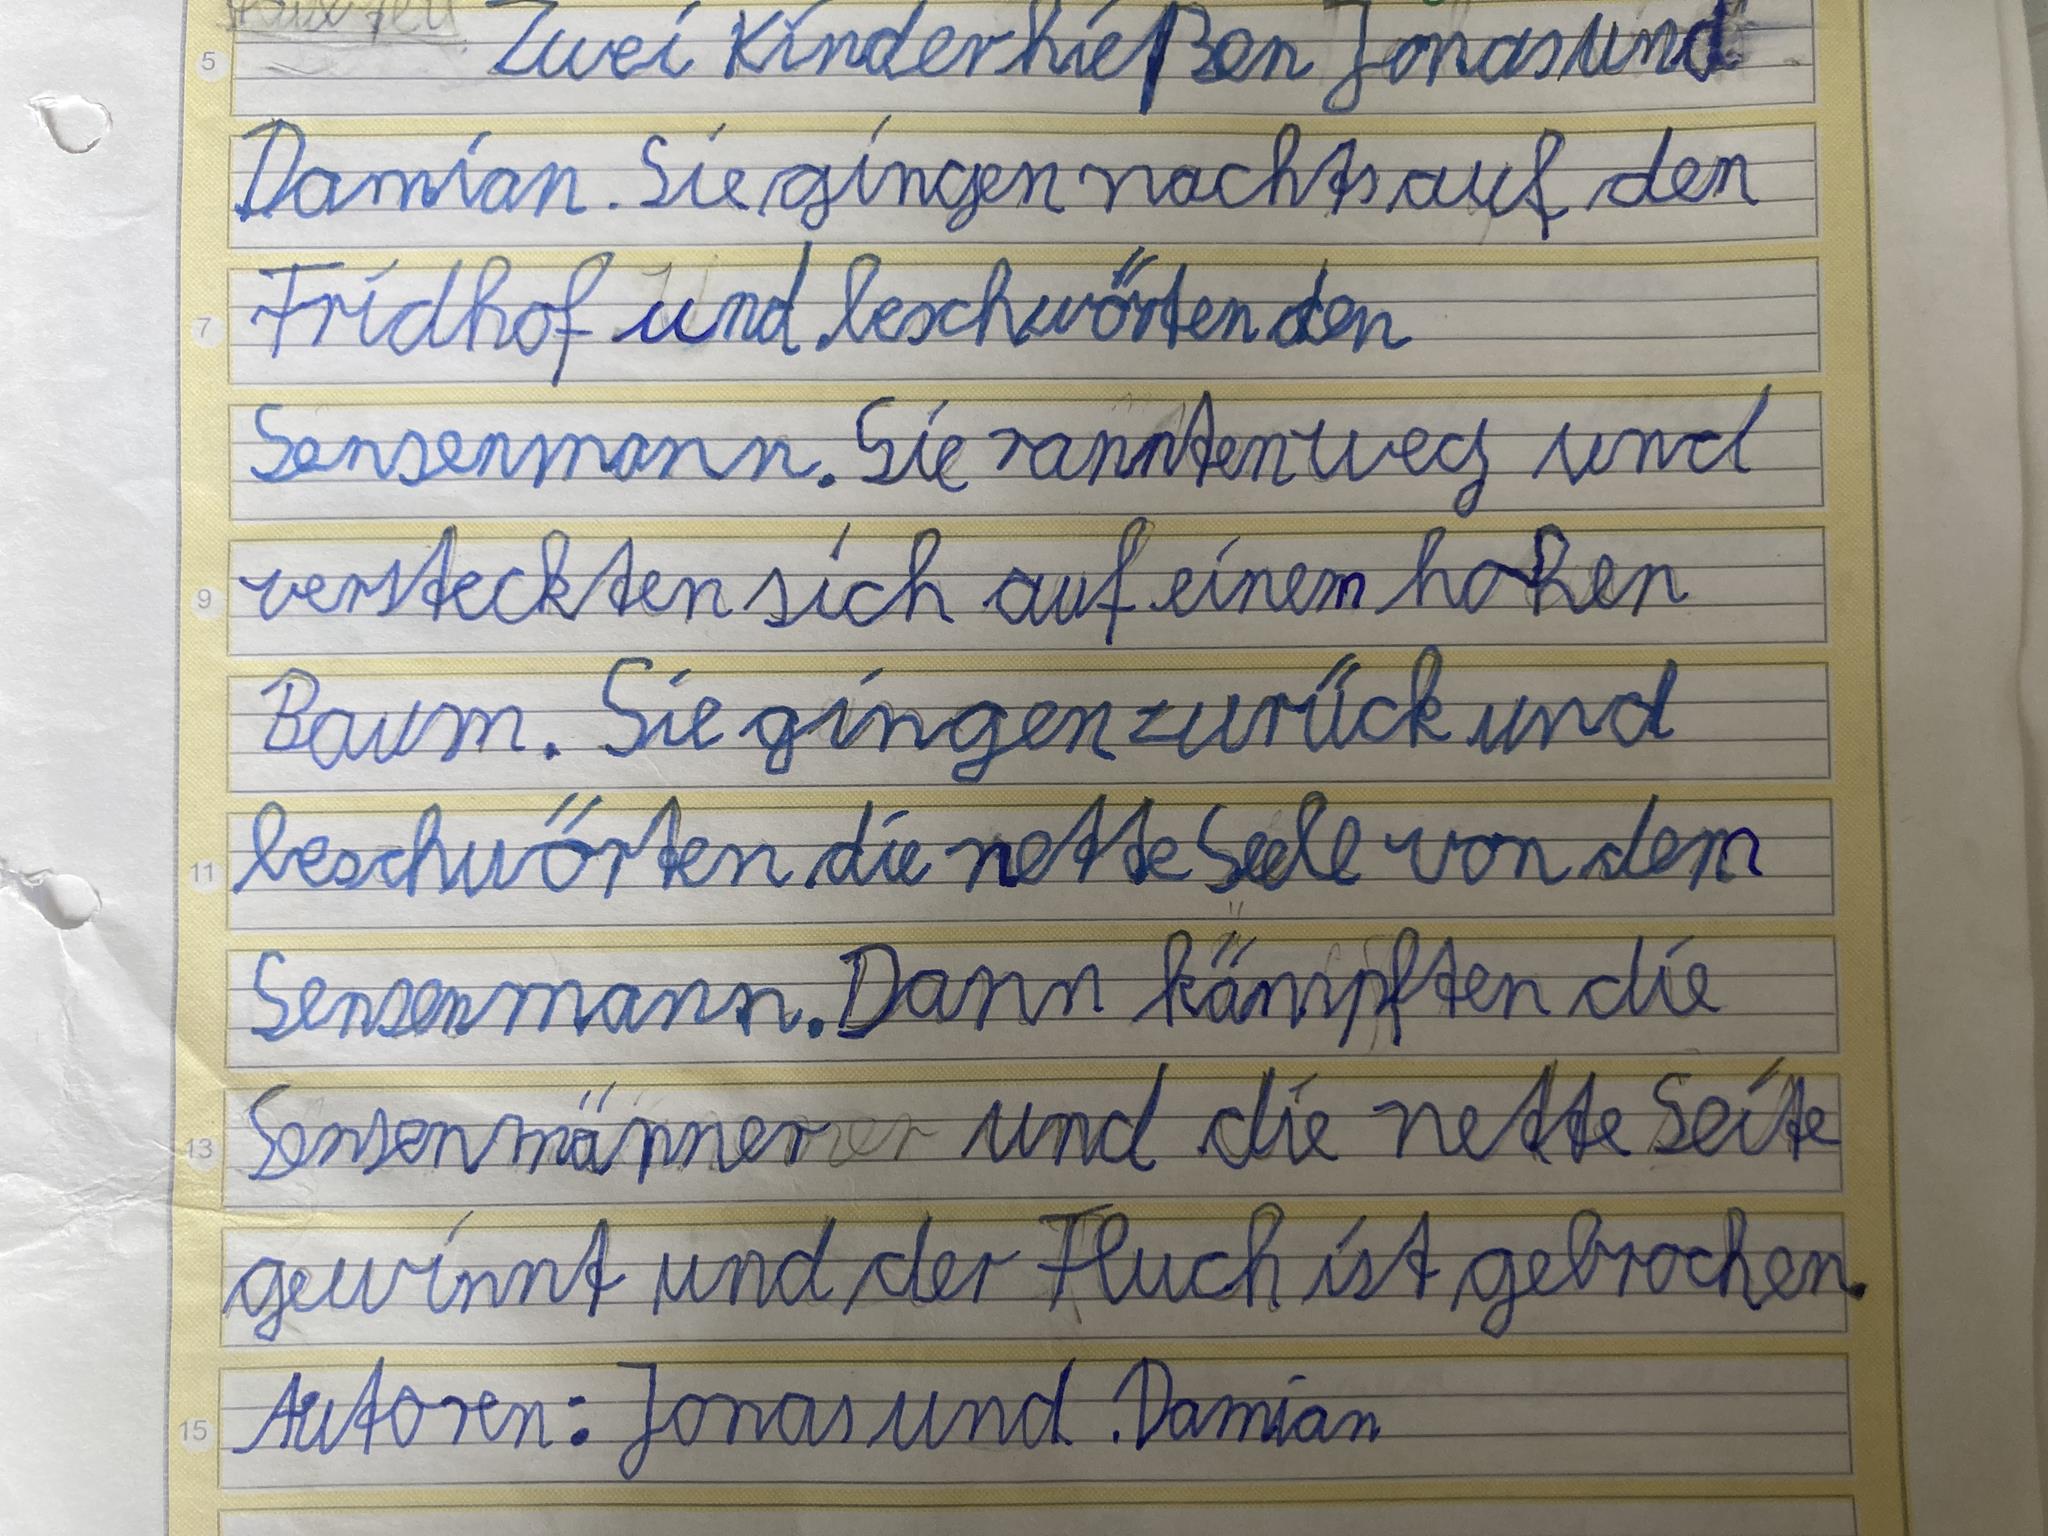 5 Zwei Kinder hießen Jonas und
Damian. Sie gingen nachts auf den
7 Fridhof und beschwörten den
Sensenmann. Sie rannten weg und
9 versteckten sich auf einem hohen
Baum. Sie gingen zurück und
11 beschwörten die nette Seele von dem
Sensenmann. Dann kämpften die
13 Sensenmänner und die nette Seite
gewinnt und der Fluch ist gebrochen.
15 Autoren: Jonas und Damian